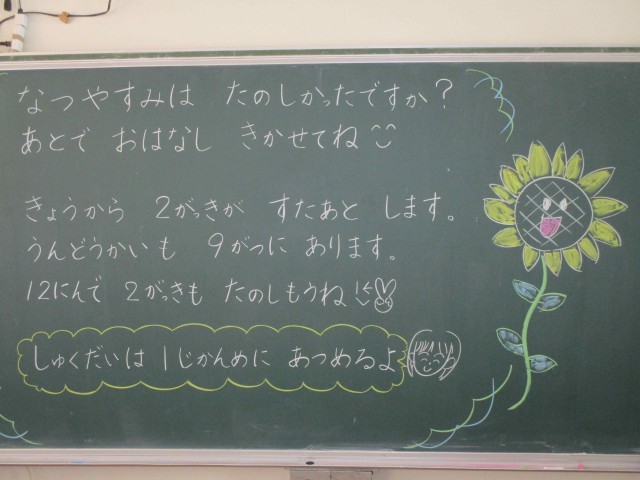 なつやすみは たのしかったですか?
あとで おはなし きかせてね
きょうから 2がっきが すたあと します。
うんどうかいも 9がつに あります。
12にんで 2がっきも たのしもうね
しゅくだいは 1じかんめに あつめるよ